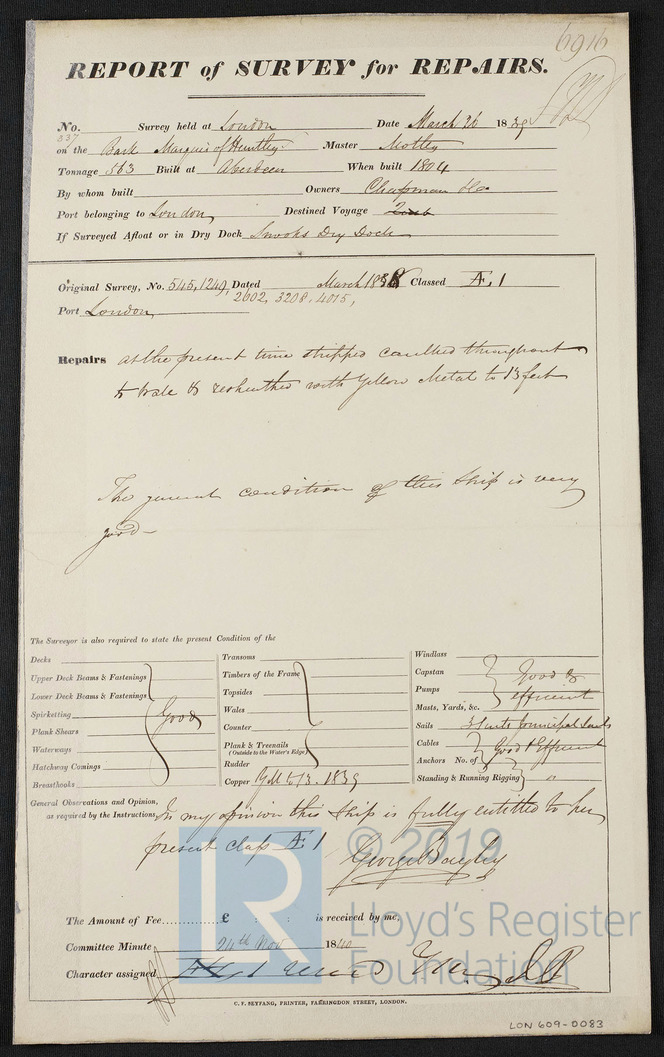 6916
REPORT of SURVEY for REPAIRS.
No. 337 Survey held at London Date March 26 1839
on the Bark Marquis of Huntley Master Motley
Tonnage 563 Built at Aberdeen When built 1804
By whom built Owners Chapman & Co
Port belonging to London Destined Voyage
If Surveyed Afloat or in Dry Dock Snooks Dry Dock
Original Survey, No. 545, 1249, Dated March 1838 Classed Æ 1
2602, 3208, 4015,
Port London
Repairs at the present time stripped caulked throughout
to Wale & resheathed with Yellow Metal to 13 feet
The general condition of this Ship is very
good
The Surveyor is also required to state the present Condition of the
Decks
Upper Deck Beams & Fastenings
Lower Deck Beams & Fastenings
Spirketting Good
Plank Shears
Waterways
Hatchway Comings
Breasthooks
Transoms
Timbers of the Frame
Topsides
Wales
Counter
Plank & Treenails
(Outside to the Water's Edge)
Rudder
Copper YM to 13. 1839
Windlass
Capstan good &
Pumps efficient
Masts, Yards, &c.
Sails principal sails
Cables Good & Efficient
Anchors No. of
Standing & Running Rigging "
General Observations and Opinion, In my opinion this Ship is fully entitled to her
as required by the Instructions,
present class Æ 1
George Bayley
The Amount of Fee............£ : : is received by me,
Committee Minute 24th Nov 1840
Character assigned
C. F. SEYFANG, PRINTER, FARRINGDON STREET, LONDON.
LON 609-0083
© 2019
LR
Lloyd's Register
Foundation